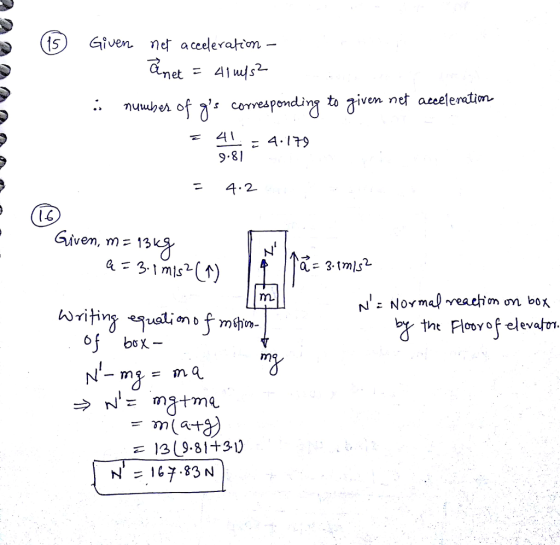 15 Given net acceleration -
a⃗net = 41 m/s2
∴ number of g's corresponding to given net acceleration
= 41/9.81 = 4.179
= 4.2
16
Given, m = 13kg
a = 3.1 m/s2 (↑)
N'
a⃗ = 3.1m/s2
m
mg
N' = Normal reaction on box
by the Floor of elevator.
Writing equation of motion-
of box -
N' - mg = ma
⇒ N' = mg+ma
= m(a+g)
= 13(9.81+3.1)
N' = 167.83 N